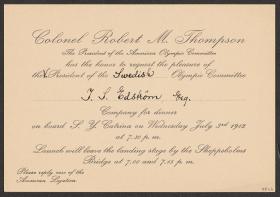 Colonel Robert M. Thompson
The President of the American Olympic Committee
has the honor to request the pleasure of
President of the Swedish Olympic Committee
J. S. Edström Esq.
Company for dinner
on board S. Y. Catrina on Wednesday July 3rd 1912
at 7.30 p. m.
Launch will leave the landing stage by the Skeppsholms
Bridge at 7.00 and 7.15 p. m.
Please reply care of the
American Legation.